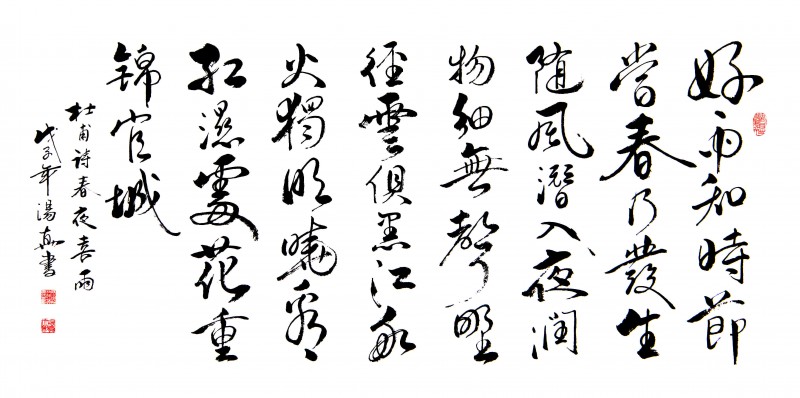 好雨知時節
當春乃發生
随風潛入夜潤
物細無聲野
徑雲俱黑江船
火獨明曉看
紅濕處花重
錦官城
杜甫詩春夜喜雨
戊子年湯書